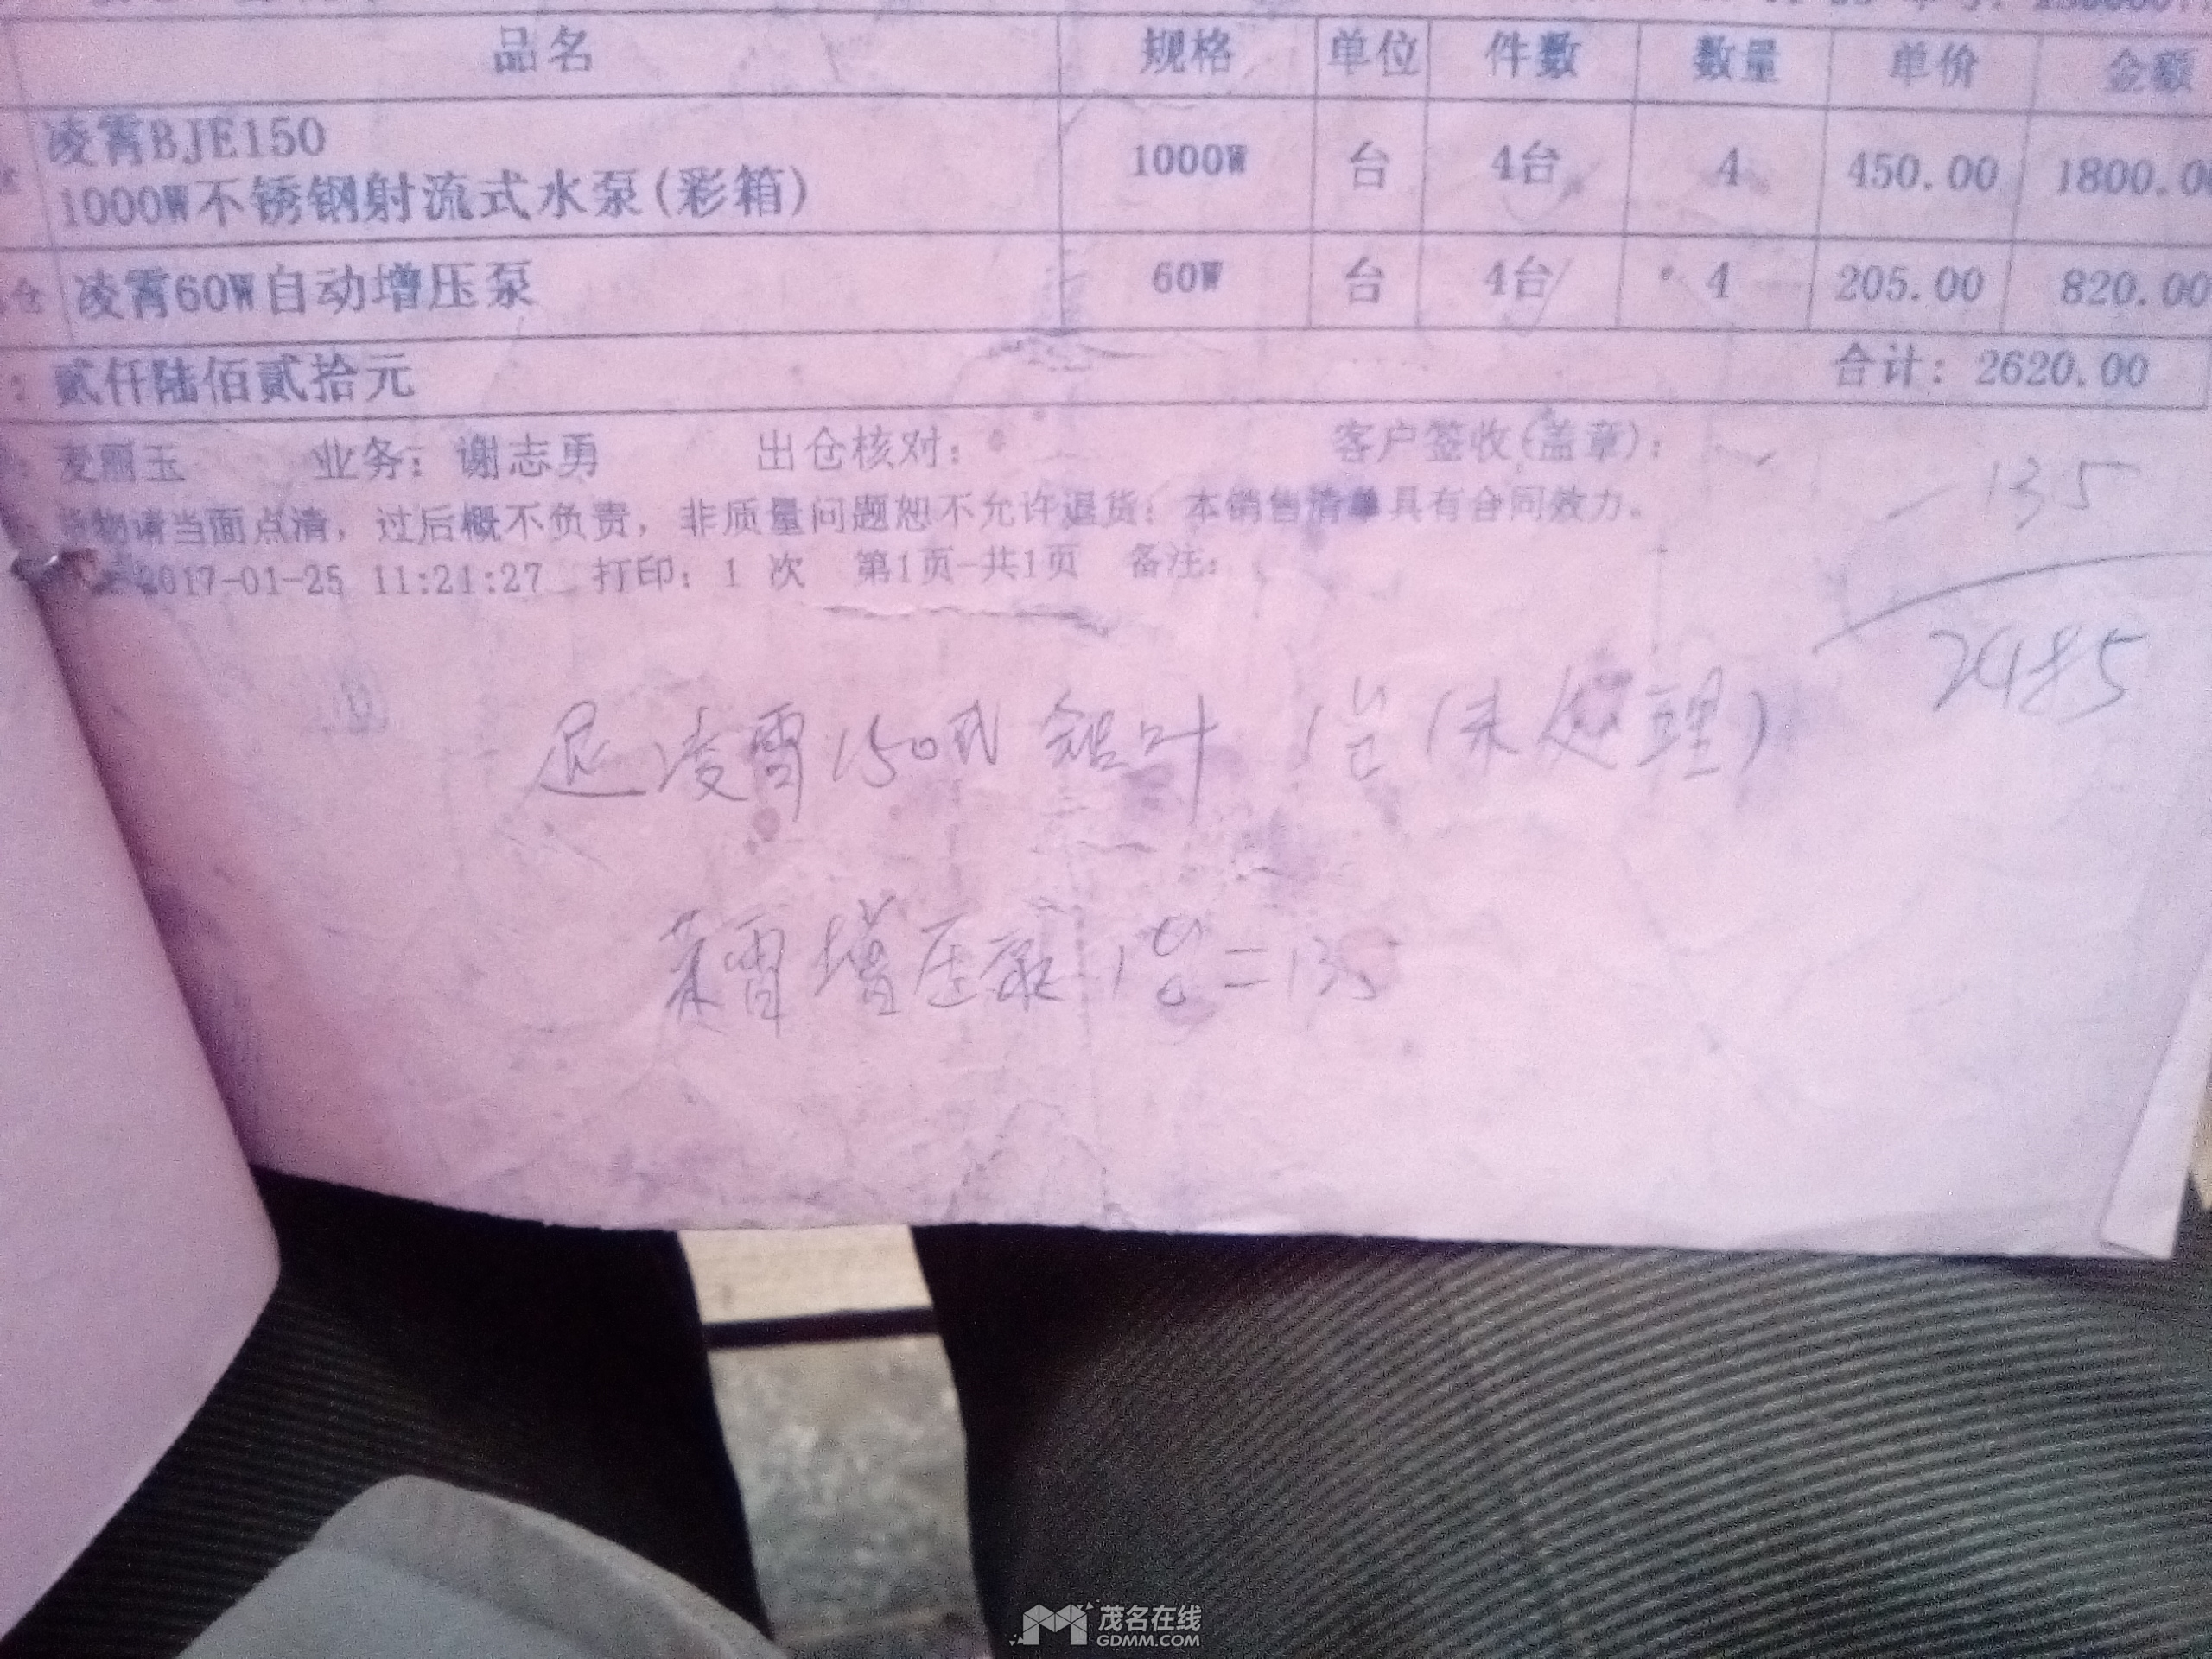 品名 规格 单位 件数 数量 单价 金额
凌霄BJE150
1000W不锈钢射流式水泵(彩箱) 1000W 台 4台 4 450.00 1800.00
仓 凌霄60W自动增压泵 60W 台 4台 4 205.00 820.00
: 贰仟陆佰贰拾元 合计: 2620.00
麦丽玉 业务: 谢志勇 出仓核对: 客户签收(盖章):
-135
货物请当面点清，过后概不负责，非质量问题恕不允许退货；本销售清单具有合同效力。
2017-01-25 11:21:27 打印: 1 次 第1页-共1页 备注:
2485
退凌霄150 铝叶 1台(未处理)
霄增压泵 1台=135
茂名在线
GDMM.COM